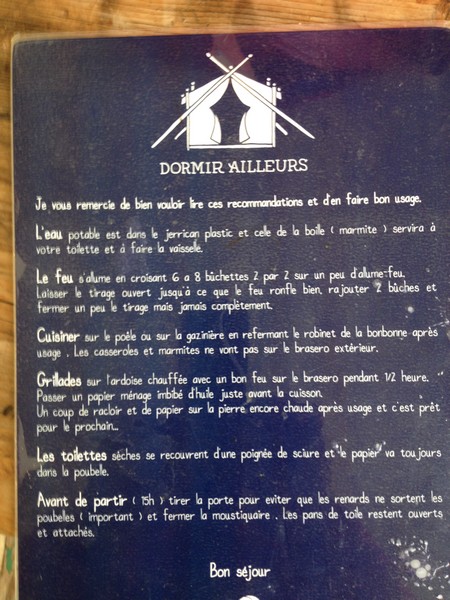 DORMIR AILLEURS
Je vous remercie de bien vouloir lire ces recommandations et d'en faire bon usage.
L'eau potable est dans le jerrican plastic et celle de la boille ( marmite ) servira à
votre toilette et à faire la vaisselle.
Le feu s'alume en croisant 6 a 8 bûchettes 2 par 2 sur un peu d'alume-feu.
Laisser le tirage ouvert jusqu'à ce que le feu ronfle bien, rajouter 2 bûches et
fermer un peu le tirage mais jamais complètement.
Cuisiner sur le poêle ou sur la gazinière en refermant le robinet de la bonbonne après
usage . Les casseroles et marmites ne vont pas sur le brasero extérieur.
Grillades sur l'ardoise chauffée avec un bon feu sur le brasero pendant 1/2 heure.
Passer un papier ménage imbibé d'huile juste avant la cuisson.
Un coup de racloir et de papier sur la pierre encore chaude après usage et c'est prêt
pour le prochain...
Les toilettes sèches se recouvrent d'une poignée de sciure et le papier va toujours
dans la poubelle.
Avant de partir ( 15h ) tirer la porte pour eviter que les renards ne sortent les
poubelles ( important ) et fermer la moustiquaire . Les pans de toile restent ouverts
et attachés.
Bon séjour